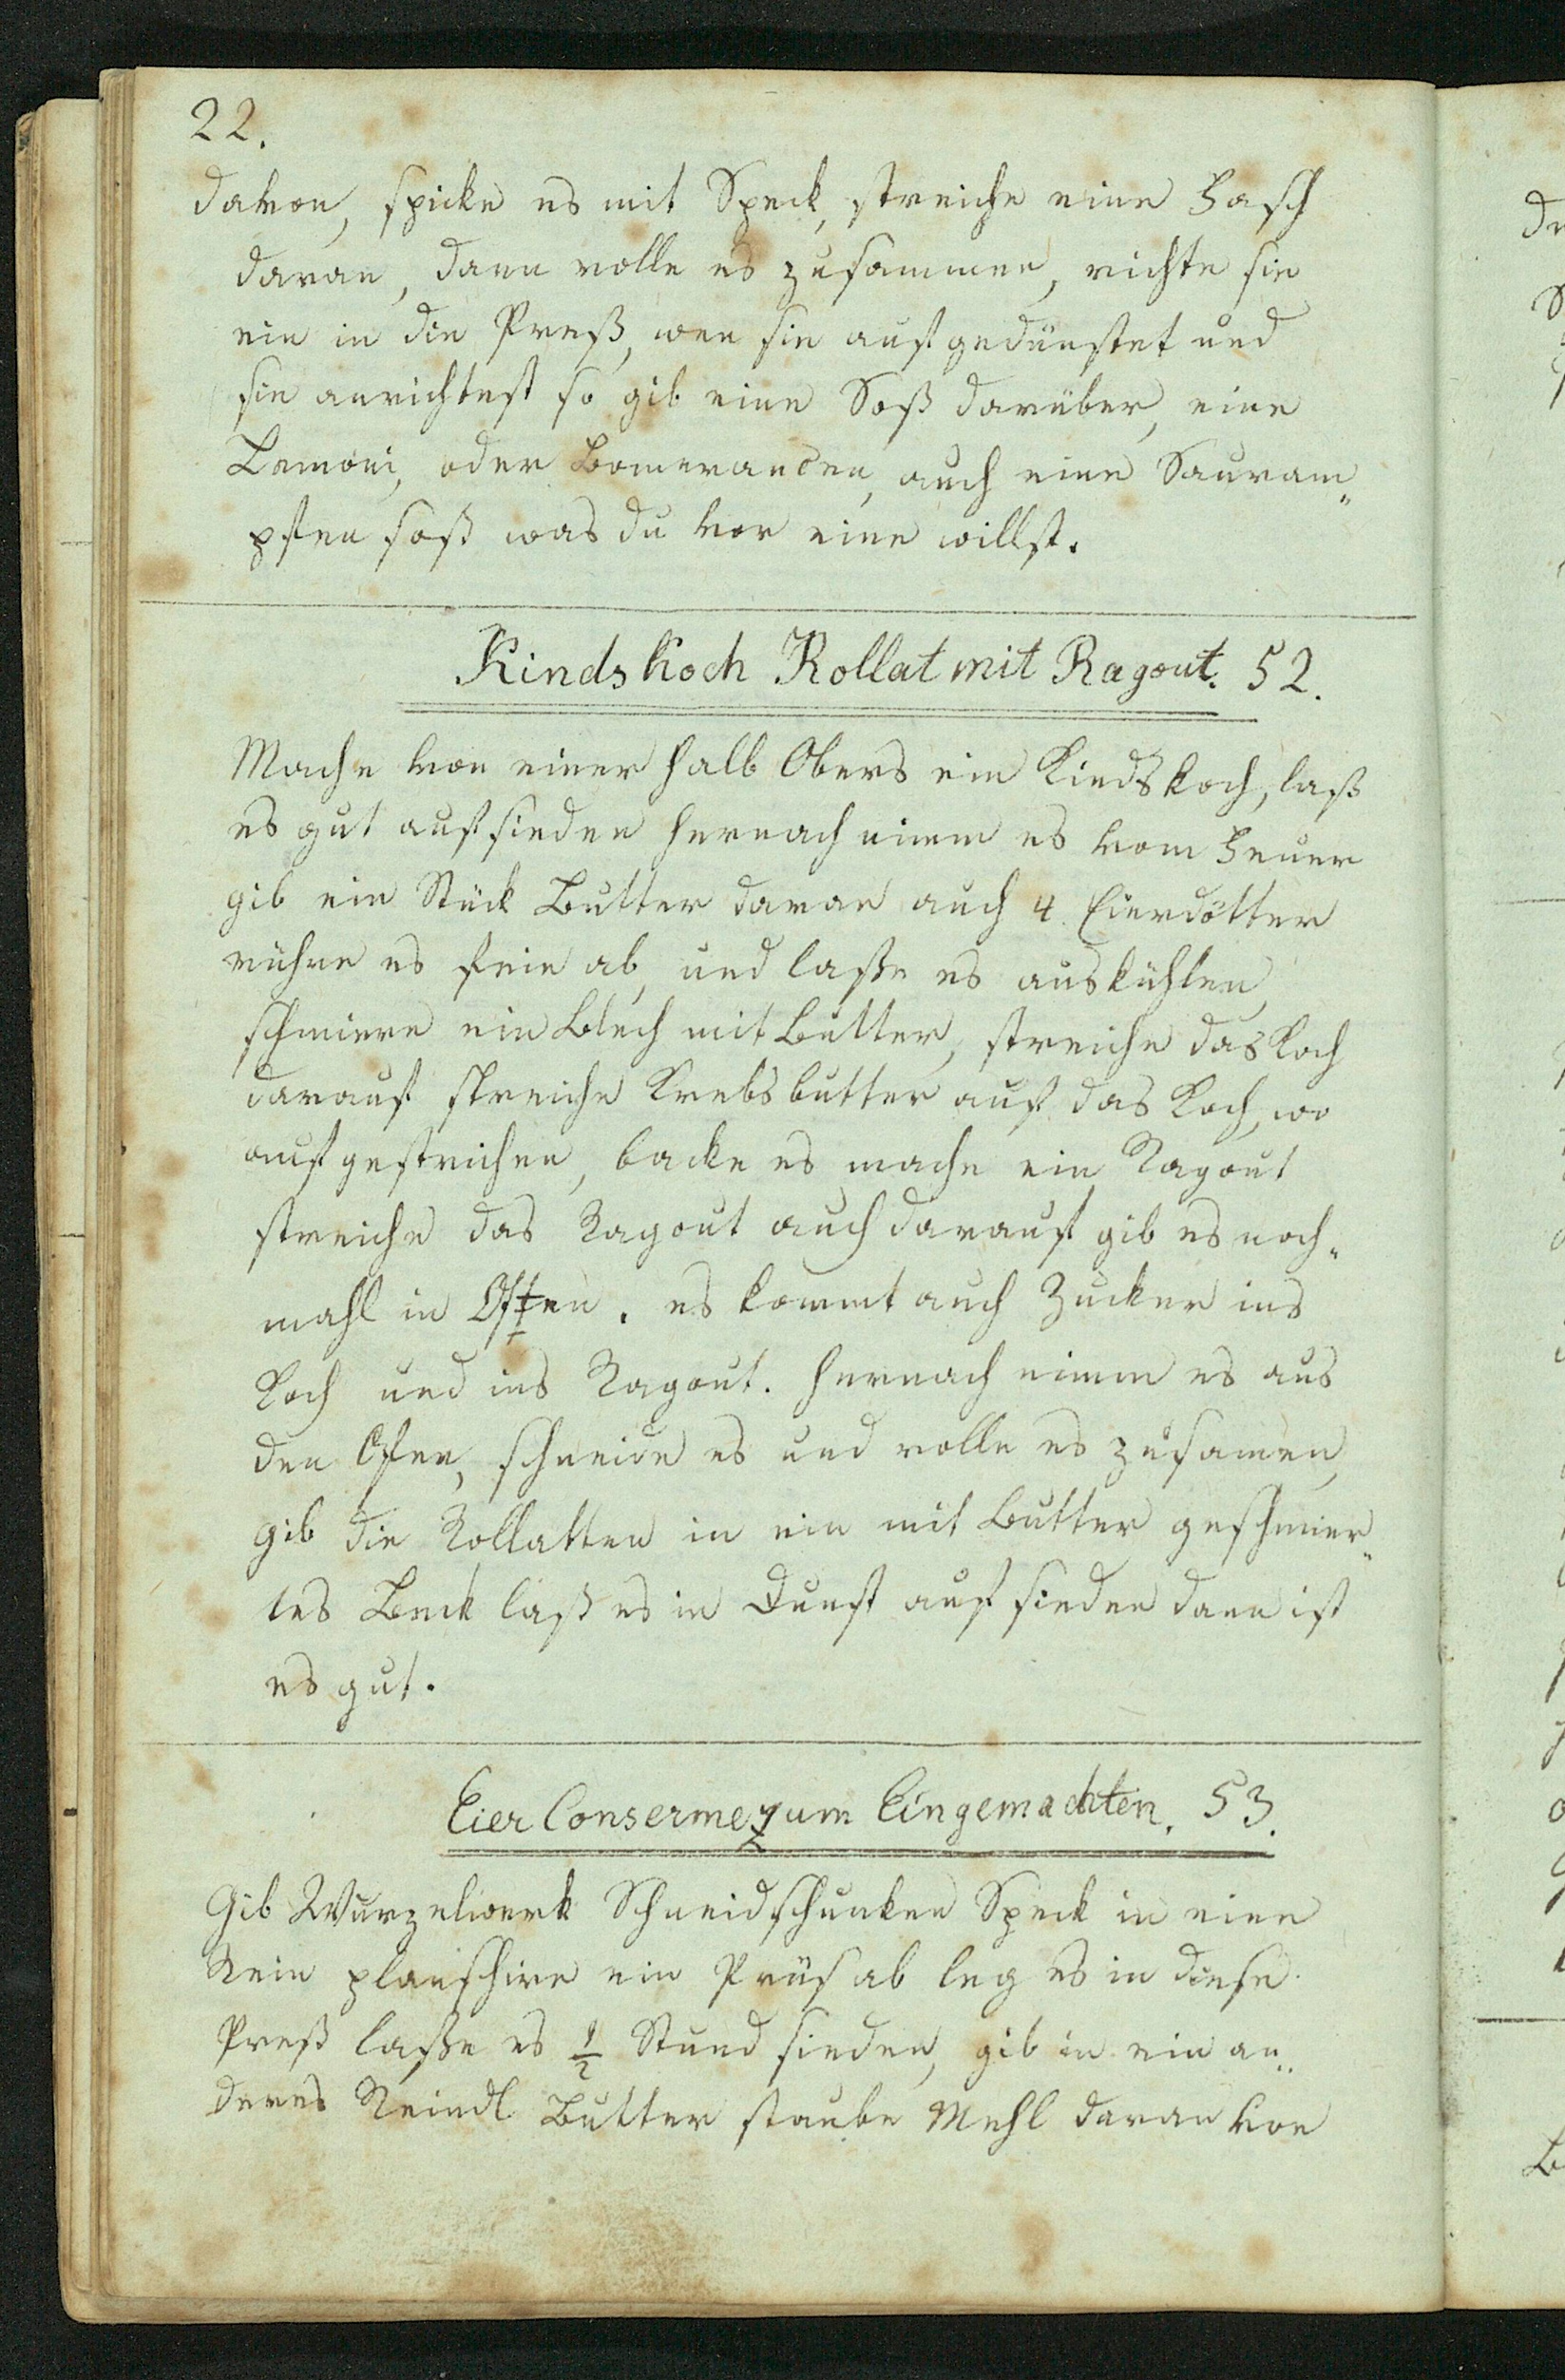 22.
davon, spicke es mit Speck, streiche eine Fasch
daran, dann rolle es zusammen, richte sie
ein in die Preß, wen sie ausgedünstet und
sie anrichtest so gib eine Soß darüber, eine
Lemoni, oder Bomeranden, auch eine Sauram„
pfen soß was du vor eine willst.
Kindskoch Rollat mit Ragout. 52.
Mache von einer halb Obers ein Kindskoch, laß
es gut aufsieden hernach nimm es vom Feuer
gib ein Stück Butter daran auch 4. Eierdötter
rühre es fein ab, und laße es auskühlen,
schmiere ein Blech mit Butter, streiche das Koch
darauf streiche Krebsbutter auf das Koch, wo
aufgestrichen, backe es mache ein Ragout
streiche das Ragout auch darauf gib es noch„
mahl in Offen. es kommt auch Zucker ins
Koch und ins Ragout. hernach nimm es aus
den Ofen, schneide es und rolle es zusamen,
gib die Rollatten in ein mit Butter geschmier„
tes Beck laß es in Dunst aufsieden dann ist
es gut.
Eier Conserme zum Eingemachten. 53.
Gib Wurzelwerk Schneidschunken Speck in eine
Rein planschire ein Prüß ab leg es in diese
Preß laße es 1/2 Stund sieden, gib in ein an„
deres Reindl Butter staube Mehl daran von